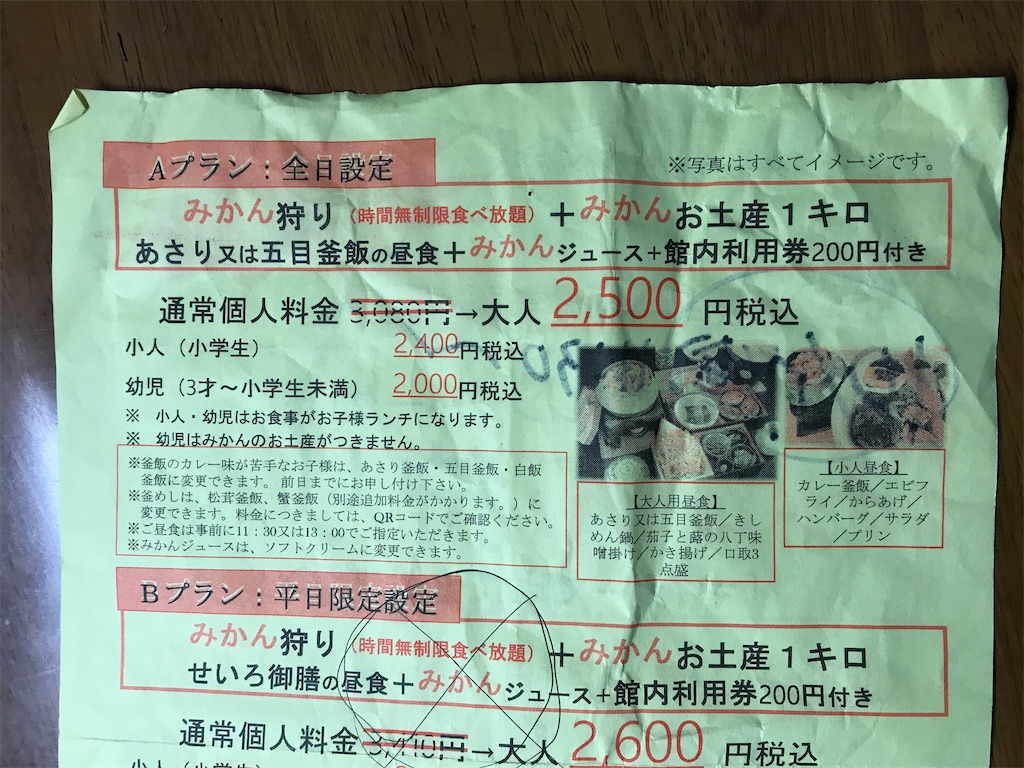 Aプラン：全日設定
※写真はすべてイメージです。
みかん狩り（時間無制限食べ放題）＋みかんお土産１キロ
あさり又は五目釜飯の昼食＋みかんジュース+館内利用券200円付き
通常個人料金 3,080円→大人 2,500 円税込
小人（小学生） 2,400円税込
幼児（3才～小学生未満） 2,000円税込
※ 小人・幼児はお食事がお子様ランチになります。
※ 幼児はみかんのお土産がつきません。
※釜飯のカレー味が苦手なお子様は、あさり釜飯・五目釜飯・白飯
釜飯に変更できます。前日までにお申し付け下さい。
※釜めしは、松茸釜飯、蟹釜飯（別途追加料金がかかります。）に
変更できます。料金につきましては、QRコードでご確認ください。
※ご昼食は事前に11：30又は13：00でご指定いただきます。
※みかんジュースは、ソフトクリームに変更できます。
【大人用昼食】
あさり又は五目釜飯／きし
めん鍋／茄子と蕗の八丁味
噌掛け／かき揚げ／口取3
点盛
【小人昼食】
カレー釜飯／エビフ
ライ／からあげ／
ハンバーグ／サラダ
／プリン
Bプラン：平日限定設定
みかん狩り（時間無制限食べ放題）＋みかんお土産１キロ
せいろ御膳の昼食＋みかんジュース+館内利用券200円付き
通常個人料金 3,410円→大人 2,600 円税込